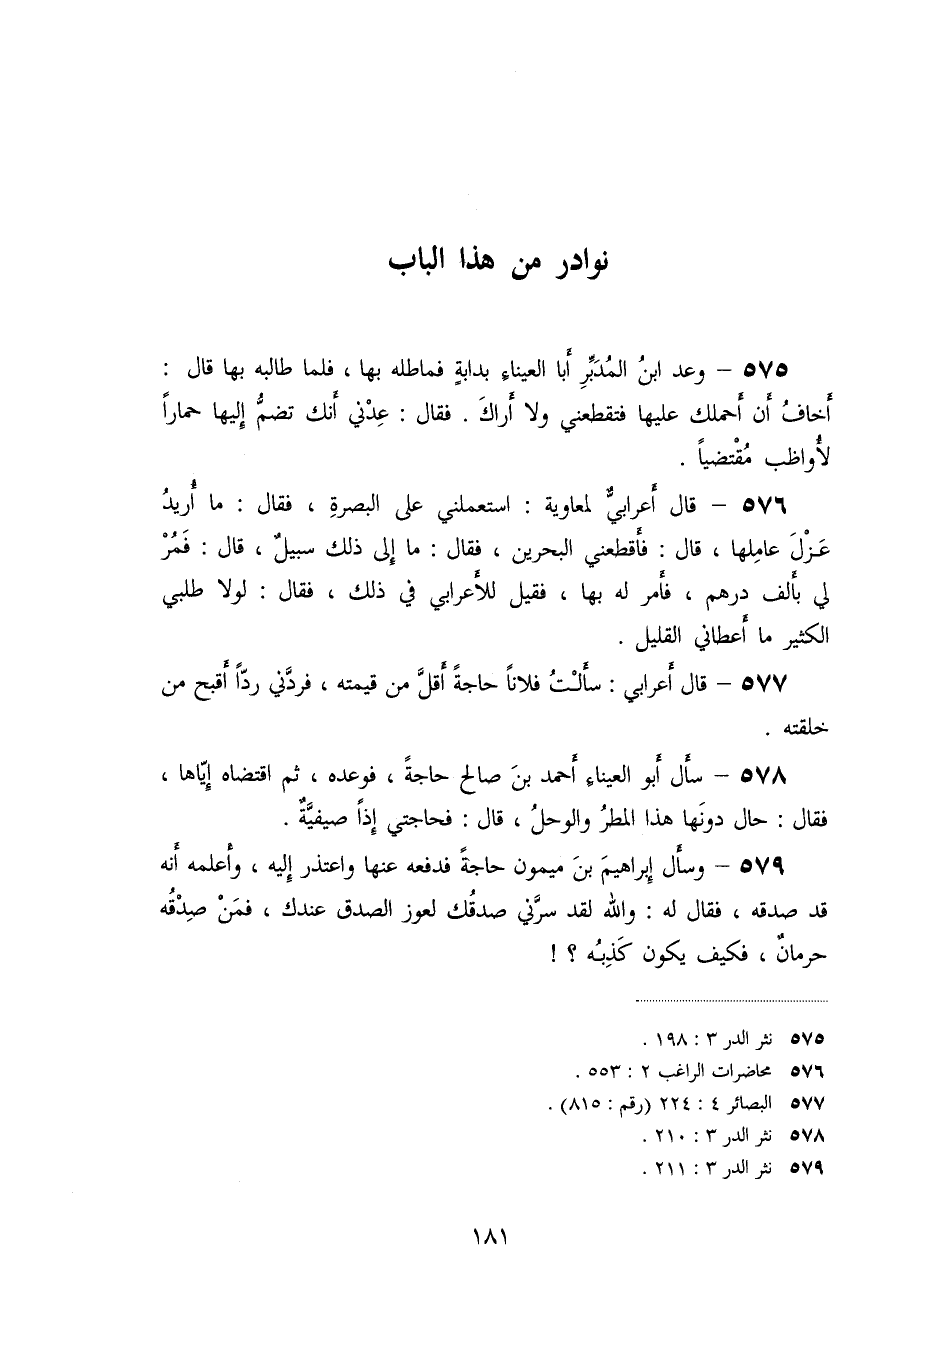 نوادر من هذا الباب
٥٧٥ – وعد ابنُ المُدَبِّرِ أَبا العيناءِ بدابةٍ فماطله بها ، فلما طالبه بها قال :
أَخافُ أَن أَحملك عليها فتقطعني ولا أَراكَ . فقال : عِدْني أَنك تضمُّ إِليها حماراً
لأُواظب مُقْتضياً .
٥٧٦ – قال أَعرابيٌّ لمعاوية : استعملني على البصرةِ ، فقال : ما أُريدُ
عَزْلَ عاملِها ، قال : فأَقطعني البحرين ، فقال : ما إِلى ذلك سبيلٌ ، قال : فَمُرْ
لي بأَلف درهم ، فأَمر له بها ، فقيل للأَعرابي في ذلك ، فقال : لولا طلبي
الكثير ما أَعطاني القليل .
٥٧٧ – قال أَعرابي : سأَلْتُ فلاناً حاجةً أَقلَّ من قيمته ، فردَّني ردّاً أَقبح من
خلقته .
٥٧٨ – سأَل أَبو العيناءِ أَحمد بنَ صالح حاجةً ، فوعده ، ثم اقتضاه إِيّاها ،
فقال : حال دونَها هذا المطرُ والوحلُ ، قال : فحاجتي إِذاً صيفيَّةٌ .
٥٧٩ – وسأَل إِبراهيمَ بنَ ميمون حاجةً فدفعه عنها واعتذر إِليه ، وأَعلمه أَنه
قد صدقه ، فقال له : والله لقد سرَّني صدقُك لعوز الصدق عندك ، فمَنْ صِدْقُه
حرمانٌ ، فكيف يكون كَذِبُه ؟ !
٥٧٥ نثر الدر ٣ : ١٩٨ .
٥٧٦ محاضرات الراغب ٢ : ٥٥٣ .
٥٧٧ البصائر ٤ : ٢٢٤ (رقم : ٨١٥) .
٥٧٨ نثر الدر ٣ : ٢١٠ .
٥٧٩ نثر الدر ٣ : ٢١١ .
١٨١